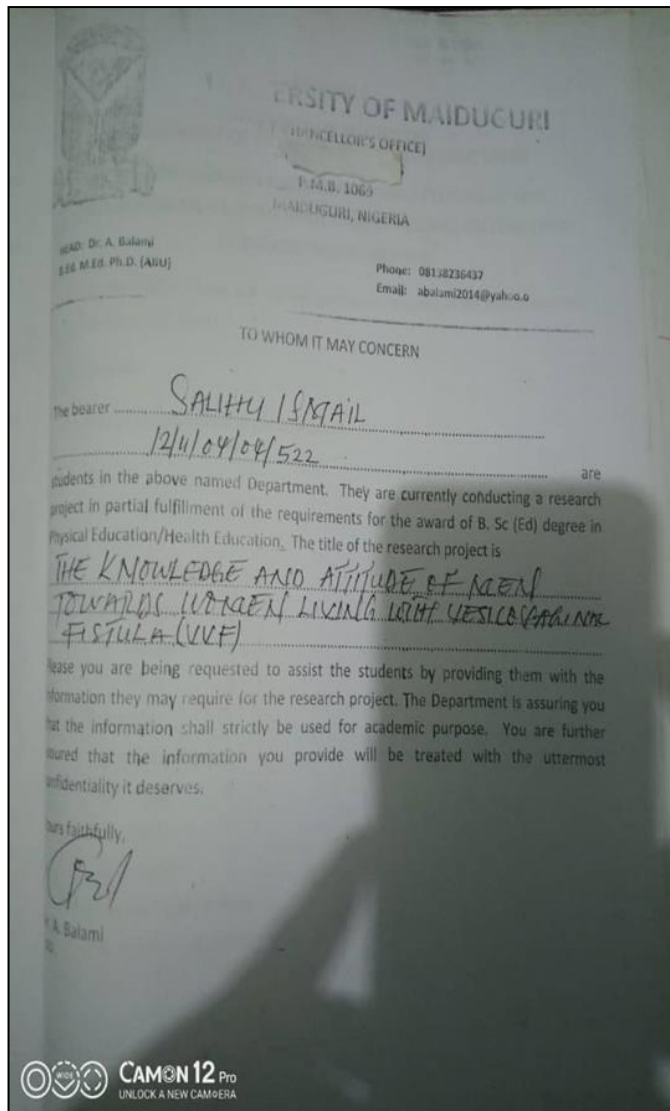 ERSITY OF MAIDUGURI
HANCELLOR'S OFFICE)
P.M.B. 1069
MAIDUGURI, NIGERIA
HEAD: Dr. A. Balami
B.Ed. M.Ed. Ph.D. (ABU)
Phone: 08138236437
Email: abalami2014@yahoo.o
TO WHOM IT MAY CONCERN
The bearer SALIHU ISMAIL
12/11/04/04/522 are
students in the above named Department. They are currently conducting a research
project in partial fulfillment of the requirements for the award of B. Sc (Ed) degree in
Physical Education/Health Education. The title of the research project is
THE KNOWLEDGE AND ATTITUDE OF MEN
TOWARDS WOMEN LIVING WITH VESICOVAGINAL
FISTULA (VVF)
lease you are being requested to assist the students by providing them with the
nformation they may require for the research project. The Department is assuring you
hat the information shall strictly be used for academic purpose. You are further
ssured that the information you provide will be treated with the uttermost
onfidentiality it deserves.
ours faithfully,
A. Balami
CAMON 12 Pro
UNLOCK A NEW CAMERA